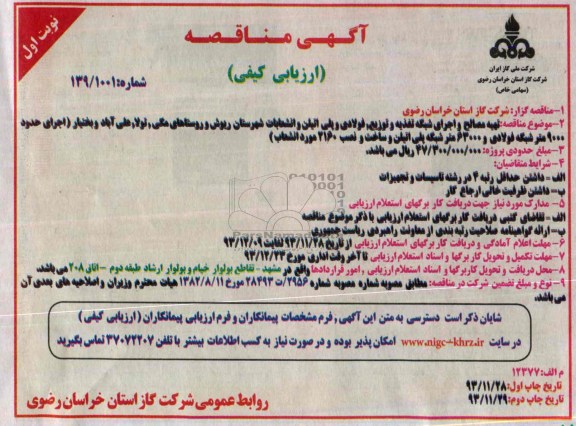 نوبت اول
آگهی مناقصه
(ارزیابی کیفی)
شماره: ۱۳۹/۱۰۰۱
شرکت ملی گاز ایران
شرکت گاز استان خراسان رضوی
(سهامی خاص)
۱- مناقصه گزار: شرکت گاز استان خراسان رضوی
۲- موضوع مناقصه: تهیه مصالح و اجرای شبکه تغذیه و توزیع، فولادی و پلی اتیلن و انشعابات شهرستان ریوش و روستاهای مگی، تولا، علی آباد و بختیار (اجرای حدود
۹۰۰۰ متر شبکه فولادی و ۶۳۰۰۰ متر شبکه پلی اتیلن و ساخت و نصب ۲۱۶۰ مورد انشعاب)
۳- مبلغ حدودی پروژه: ۴۷/۳۰۰/۰۰۰/۰۰۰ ریال می باشد.
۴- شرایط متقاضیان:
الف- داشتن حداقل رتبه ۴ در رشته تاسیسات و تجهیزات
ب- داشتن ظرفیت خالی ارجاع کار
۵- مدارک مورد نیاز جهت دریافت کاربرگهای استعلام ارزیابی
الف- تقاضای کتبی دریافت کاربرگهای استعلام ارزیابی با ذکر موضوع مناقصه
ب- ارائه گواهینامه صلاحیت رتبه بندی از معاونت راهبردی ریاست جمهوری
۶- مهلت اعلام آمادگی و دریافت کاربرگهای استعلام ارزیابی از تاریخ ۹۳/۱۱/۲۸ لغایت ۹۳/۱۲/۰۹
۷- مهلت تکمیل و تحویل کاربرگها و اسناد استعلام ارزیابی تا آخر وقت اداری مورخ ۹۳/۱۲/۲۳
۸- محل دریافت و تحویل کاربرگها و اسناد استعلام ارزیابی، امور قراردادها واقع در مشهد - تقاطع بولوار خیام و بولوار ارشاد طبقه دوم - اتاق ۲۰۸ می باشد.
۹- نوع و مبلغ تضمین شرکت در مناقصه: مطابق مصوبه شماره مصوبه شماره ۲۹۵۶/ت۲۸۴۹۳ مورخ ۱۳۸۲/۸/۱۱ هیات محترم وزیران و اصلاحیه های بعدی آن
می باشد.
شایان ذکر است دسترسی به متن این آگهی، فرم مشخصات پیمانکاران و فرم ارزیابی پیمانکاران (ارزیابی کیفی)
در سایت www.nigc-khrz.ir امکان پذیر بوده و در صورت نیاز به کسب اطلاعات بیشتر با تلفن ۳۷۰۷۲۲۰۷ تماس بگیرید
م الف: ۱۲۳۷۷
تاریخ چاپ اول: ۹۳/۱۱/۲۸
تاریخ چاپ دوم: ۹۳/۱۱/۲۹
روابط عمومی شرکت گاز استان خراسان رضوی